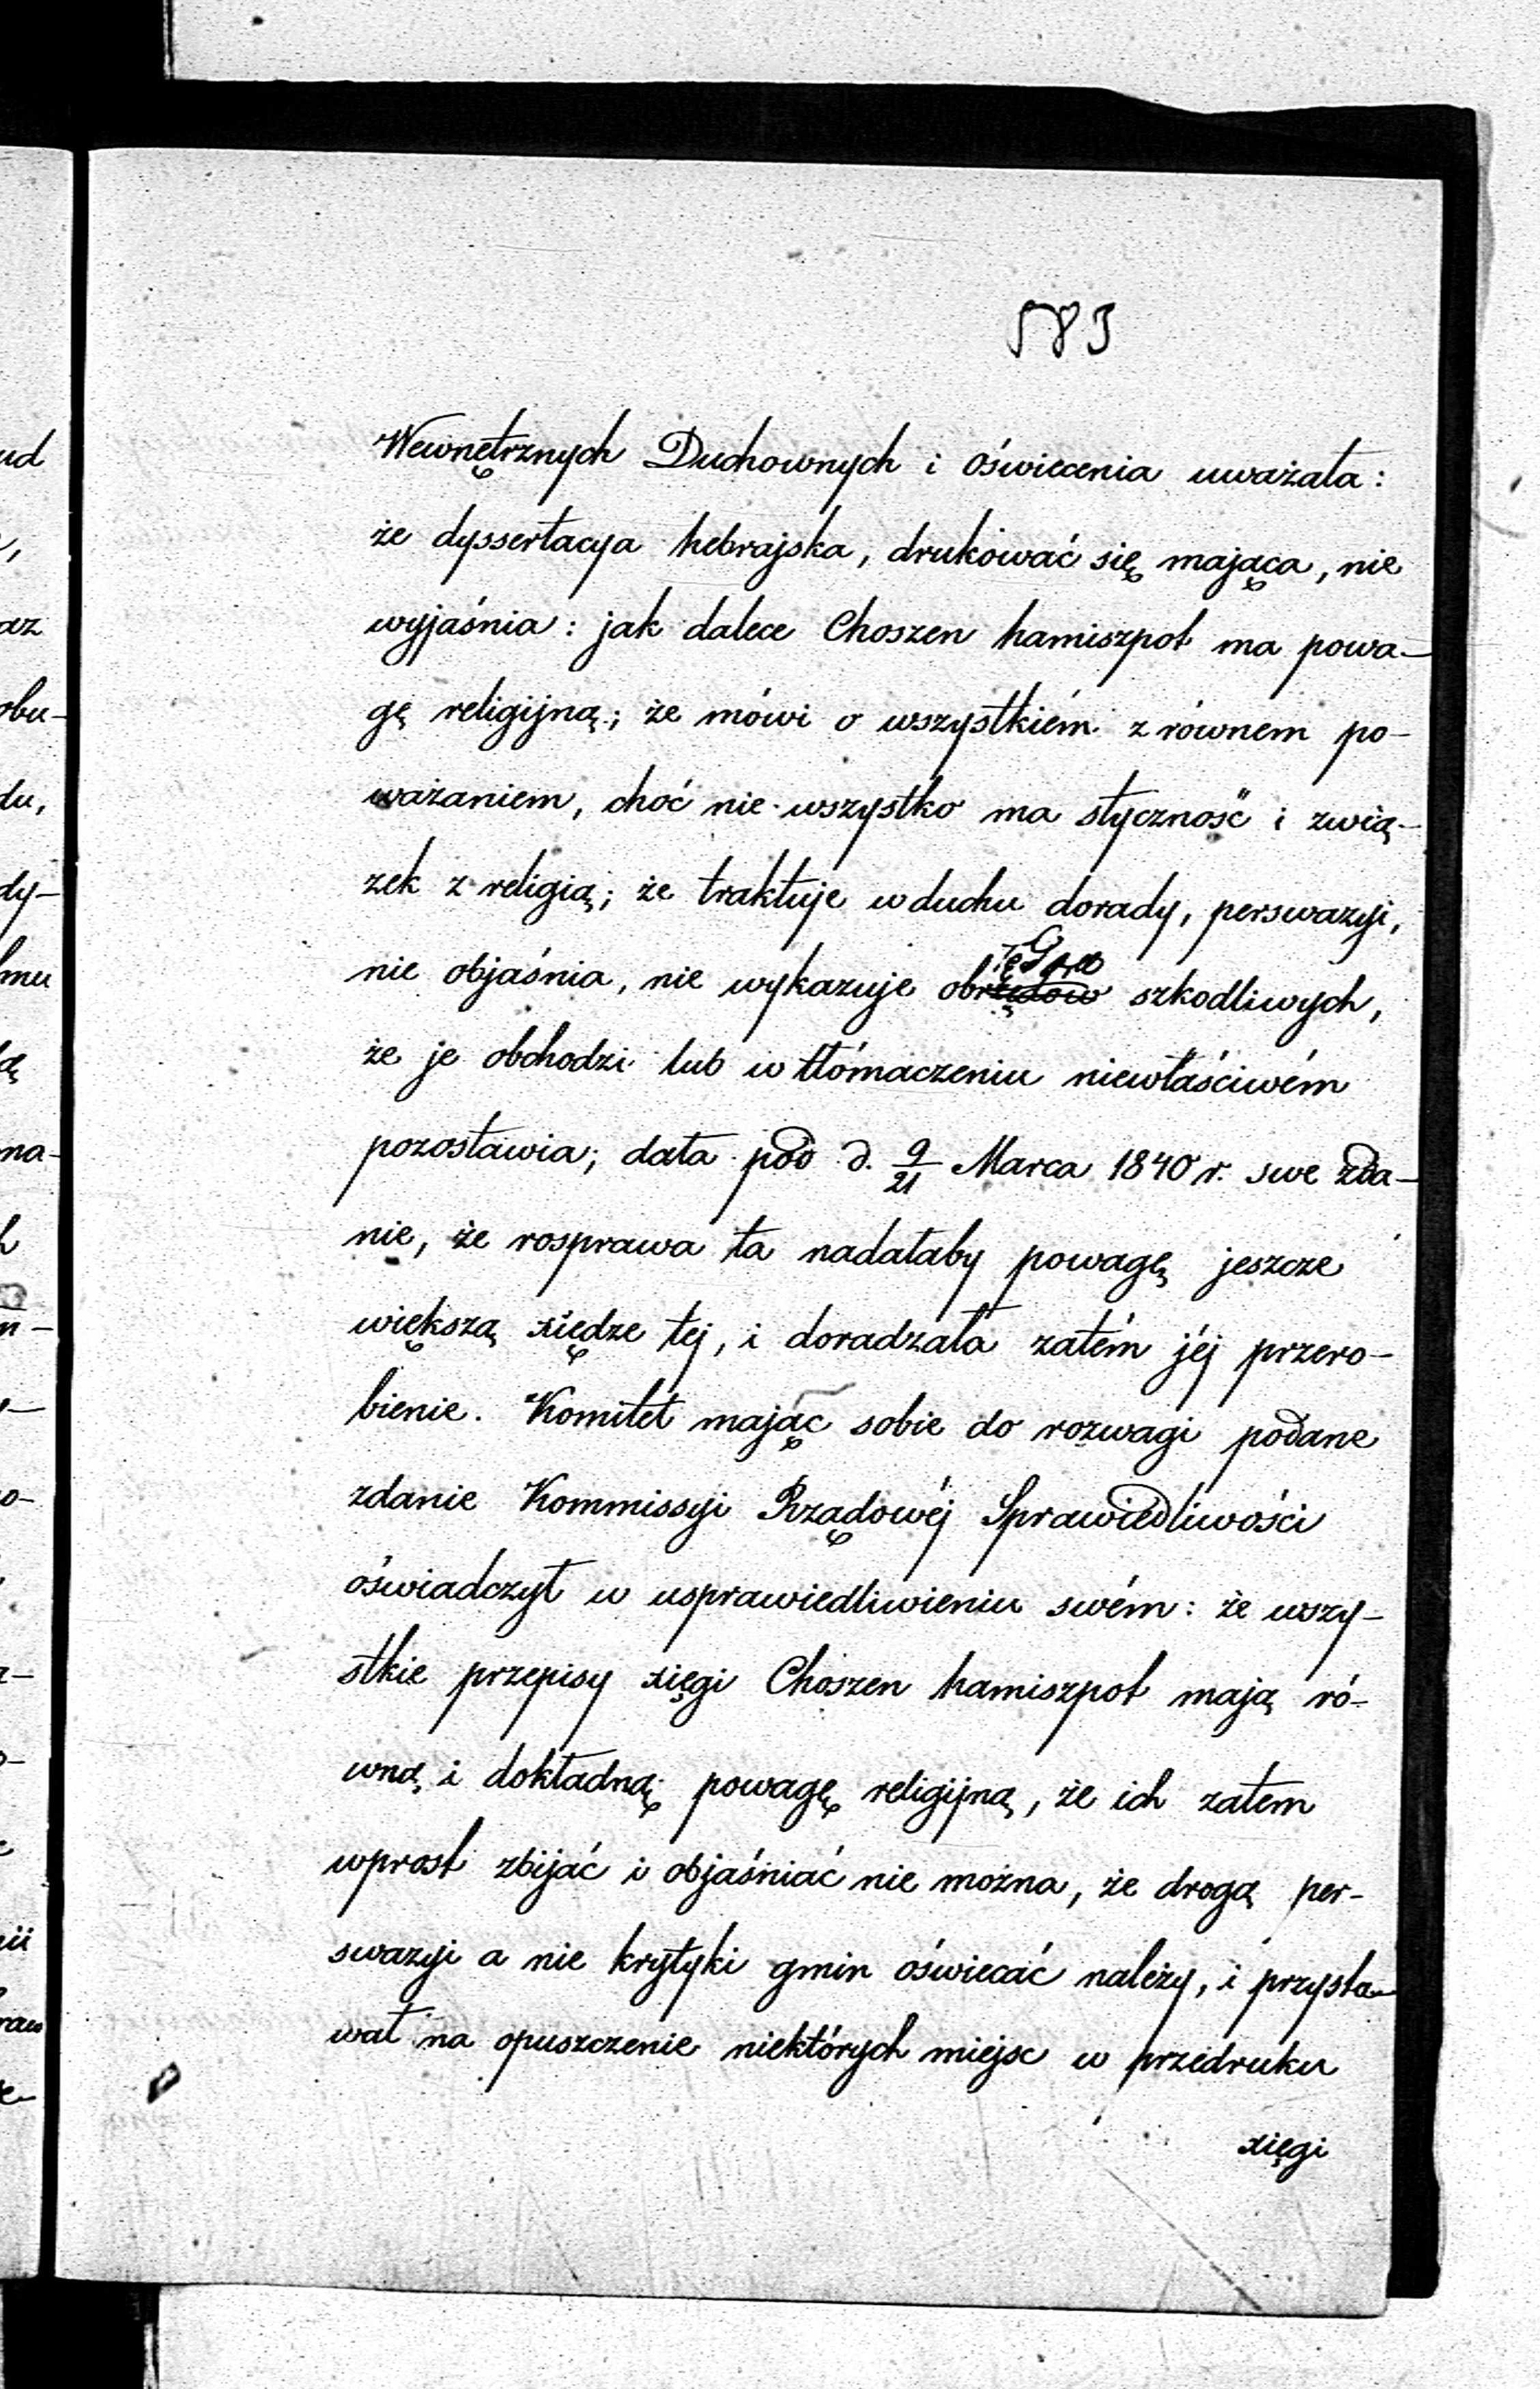 583
Wewnętrznych Duchownych i oświecenia uważała:
że dyssertacya hebrajska, drukować się mająca, nie
wyjaśnia: jak dalece Choszen hamiszpot ma powa-
gę religijną; że mówi o wszystkiém z równem po-
ważaniem, choć nie wszystko ma styczność i zwią-
zek z religią; że traktuje w duchu dorady, perswazyi,
nie objaśnia, nie wykazuje obrzędów szkodliwych,
że je obchodzi lub w tłómaczeniu niewłaściwém
pozostawia; dała pod d. 9/21 Marca 1840 r. swe zda-
nie, że rosprawa ta nadałaby powagę jeszcze
większą xiędze tej, i doradzała zatém jéj przero-
bienie. Komitet mając sobie do rozwagi podane
zdanie Kommissyi Rządowéj Sprawiedliwości
oświadczył w usprawiedliwieniu swém: że wszy-
stkie przepisy xięgi Choszen hamiszpot mają ró-
wną i dokładną powagę religijną, że ich zatem
wprost zbijać i objaśniać nie można, że drogą per-
swazyi a nie krytyki gmin oświecać należy, i przysta-
wał na opuszczenie niektórych miejsc w przedruku
xięgi